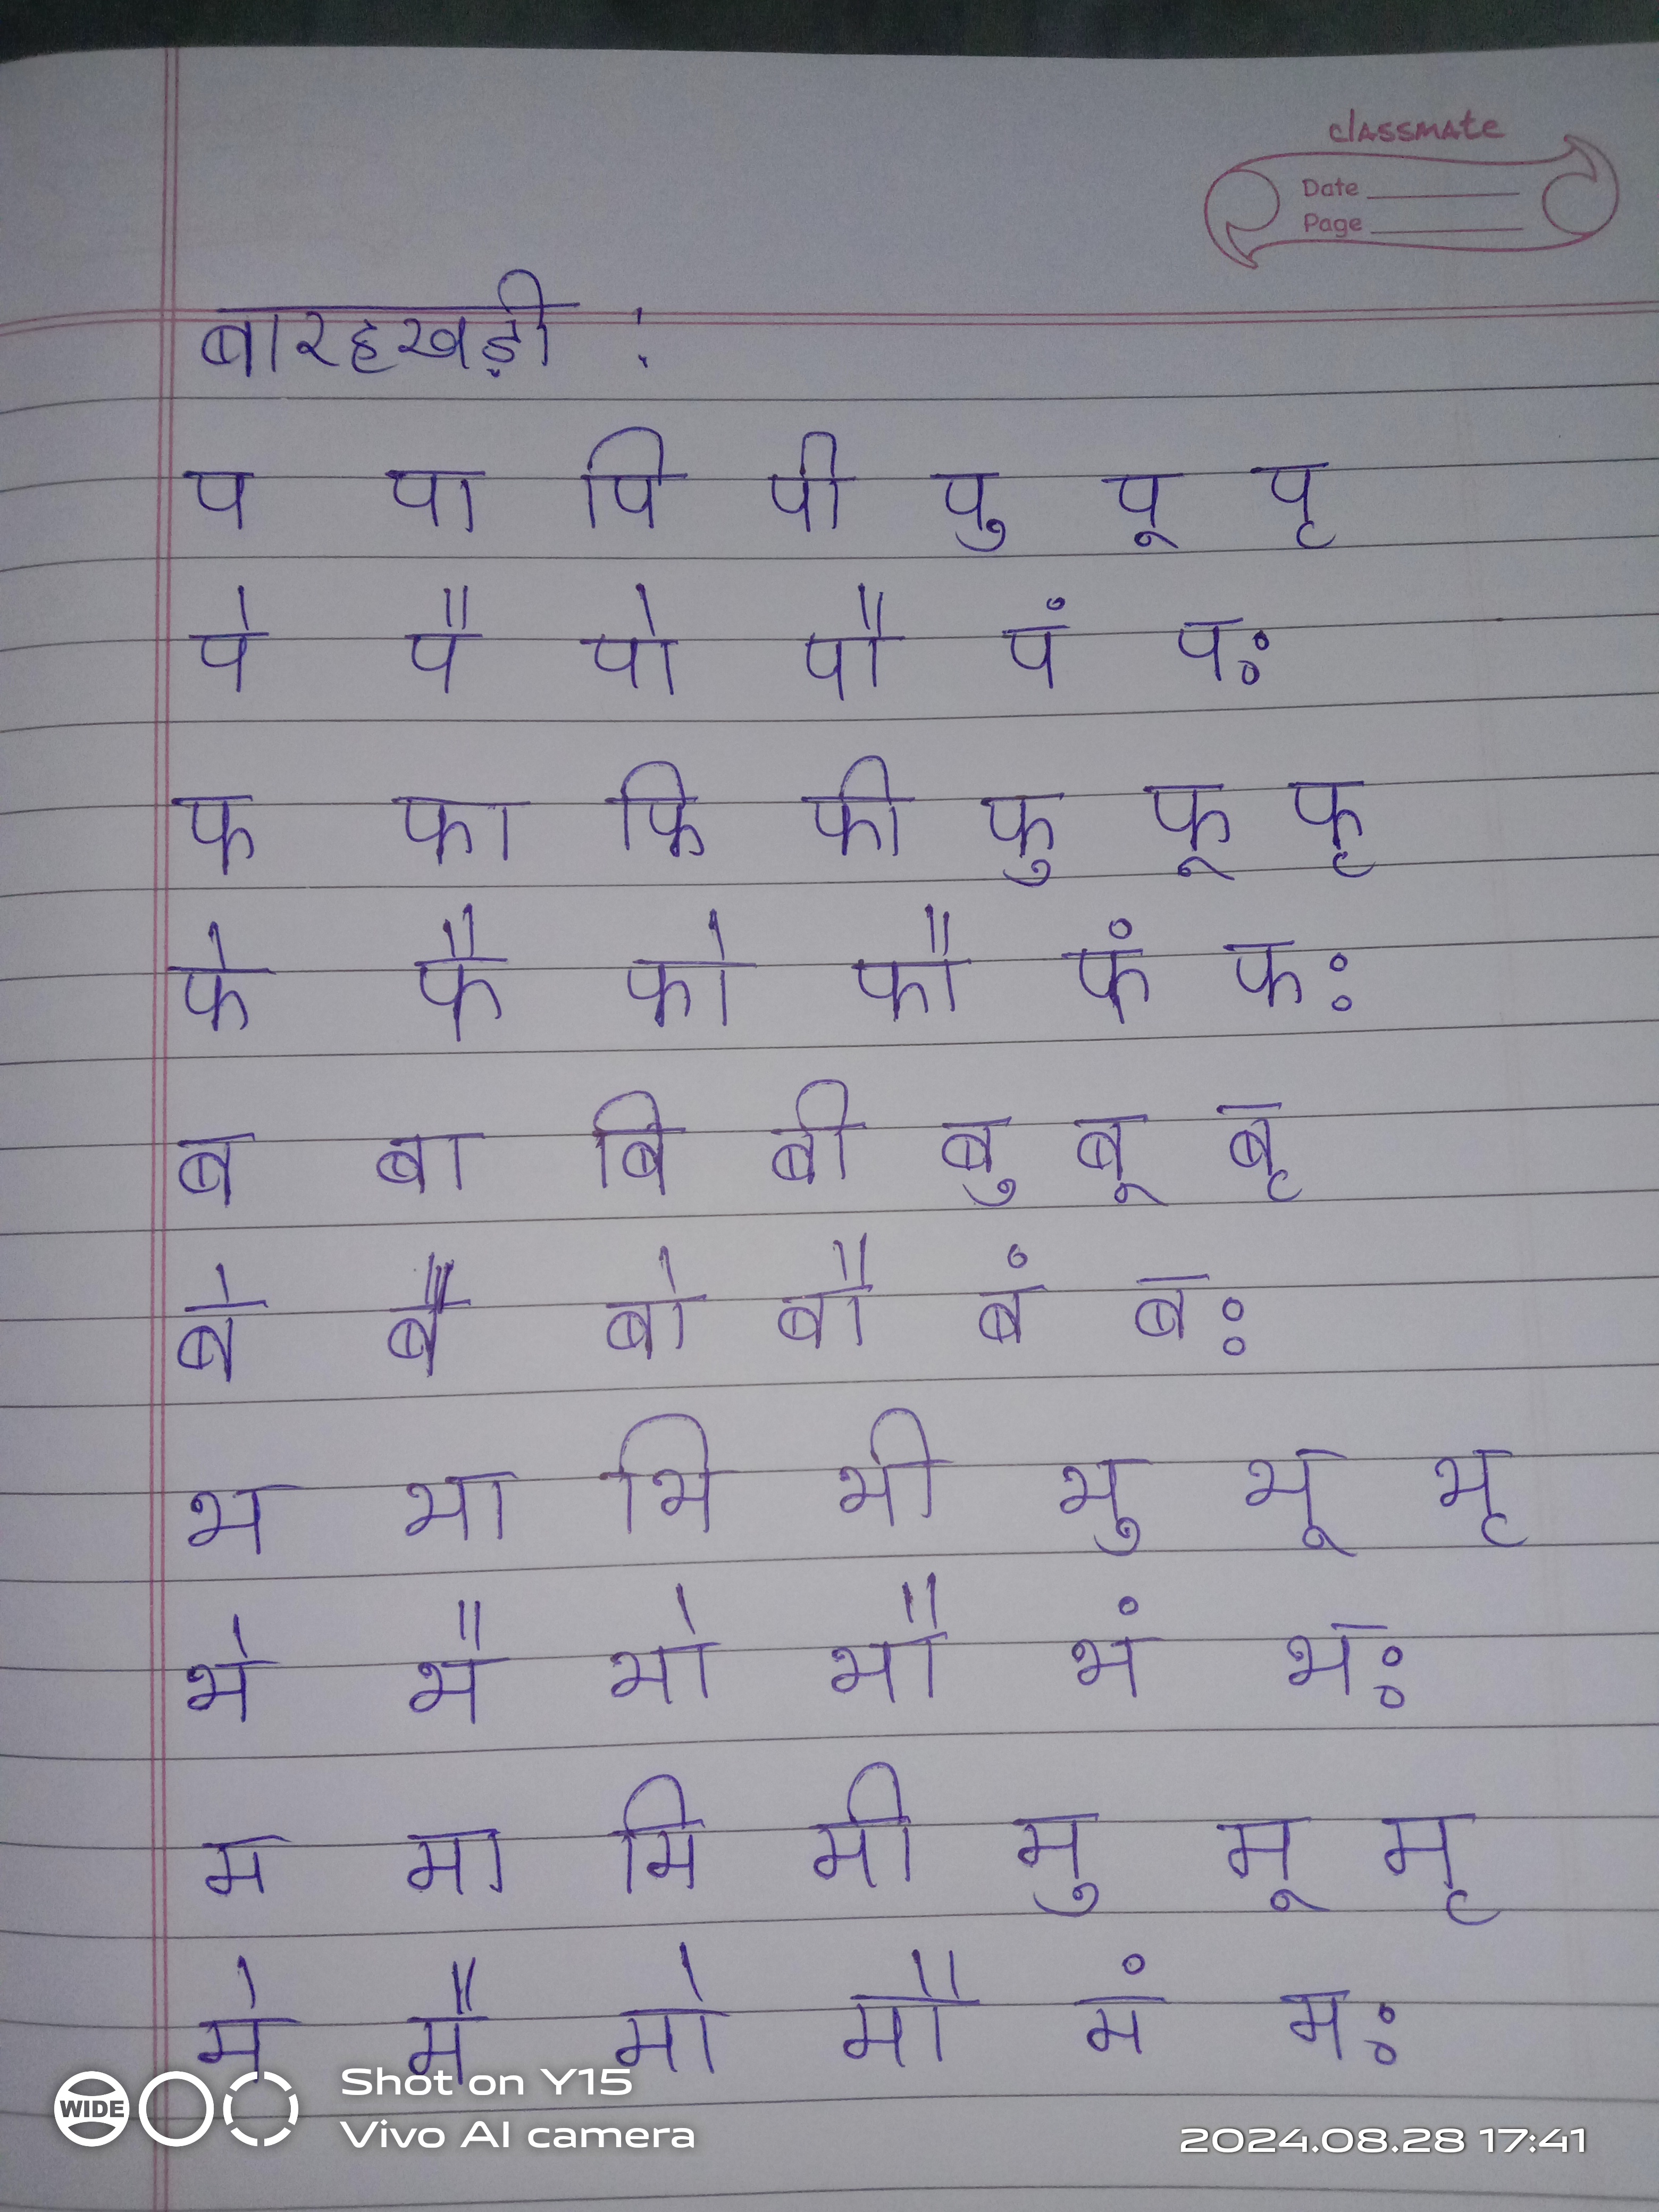 classmate
Date
Page
बारहखड़ी :
प पा पि पी पु पू पृ
पे पै पो पौ पं पः
फ फा फि फी फु फू फृ
फे फै फो फौ फं फः
ब बा बि बी बु बू बृ
बे बै बो बौ बं बः
भ भा भि भी भु भू भृ
भे भै भो भौ भं भः
म मा मि मी मु मू मृ
मे मै मो मौ मं मः
WIDE
Shot on Y15
Vivo AI camera
2024.08.28 17:41